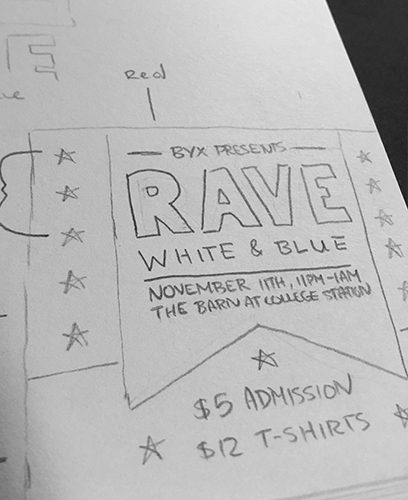 Red
BYX PRESENTS
RAVE
WHITE & BLUE
NOVEMBER 11TH, 11PM-1AM
THE BARN AT COLLEGE STATION
$5 ADMISSION
$12 T-SHIRTS